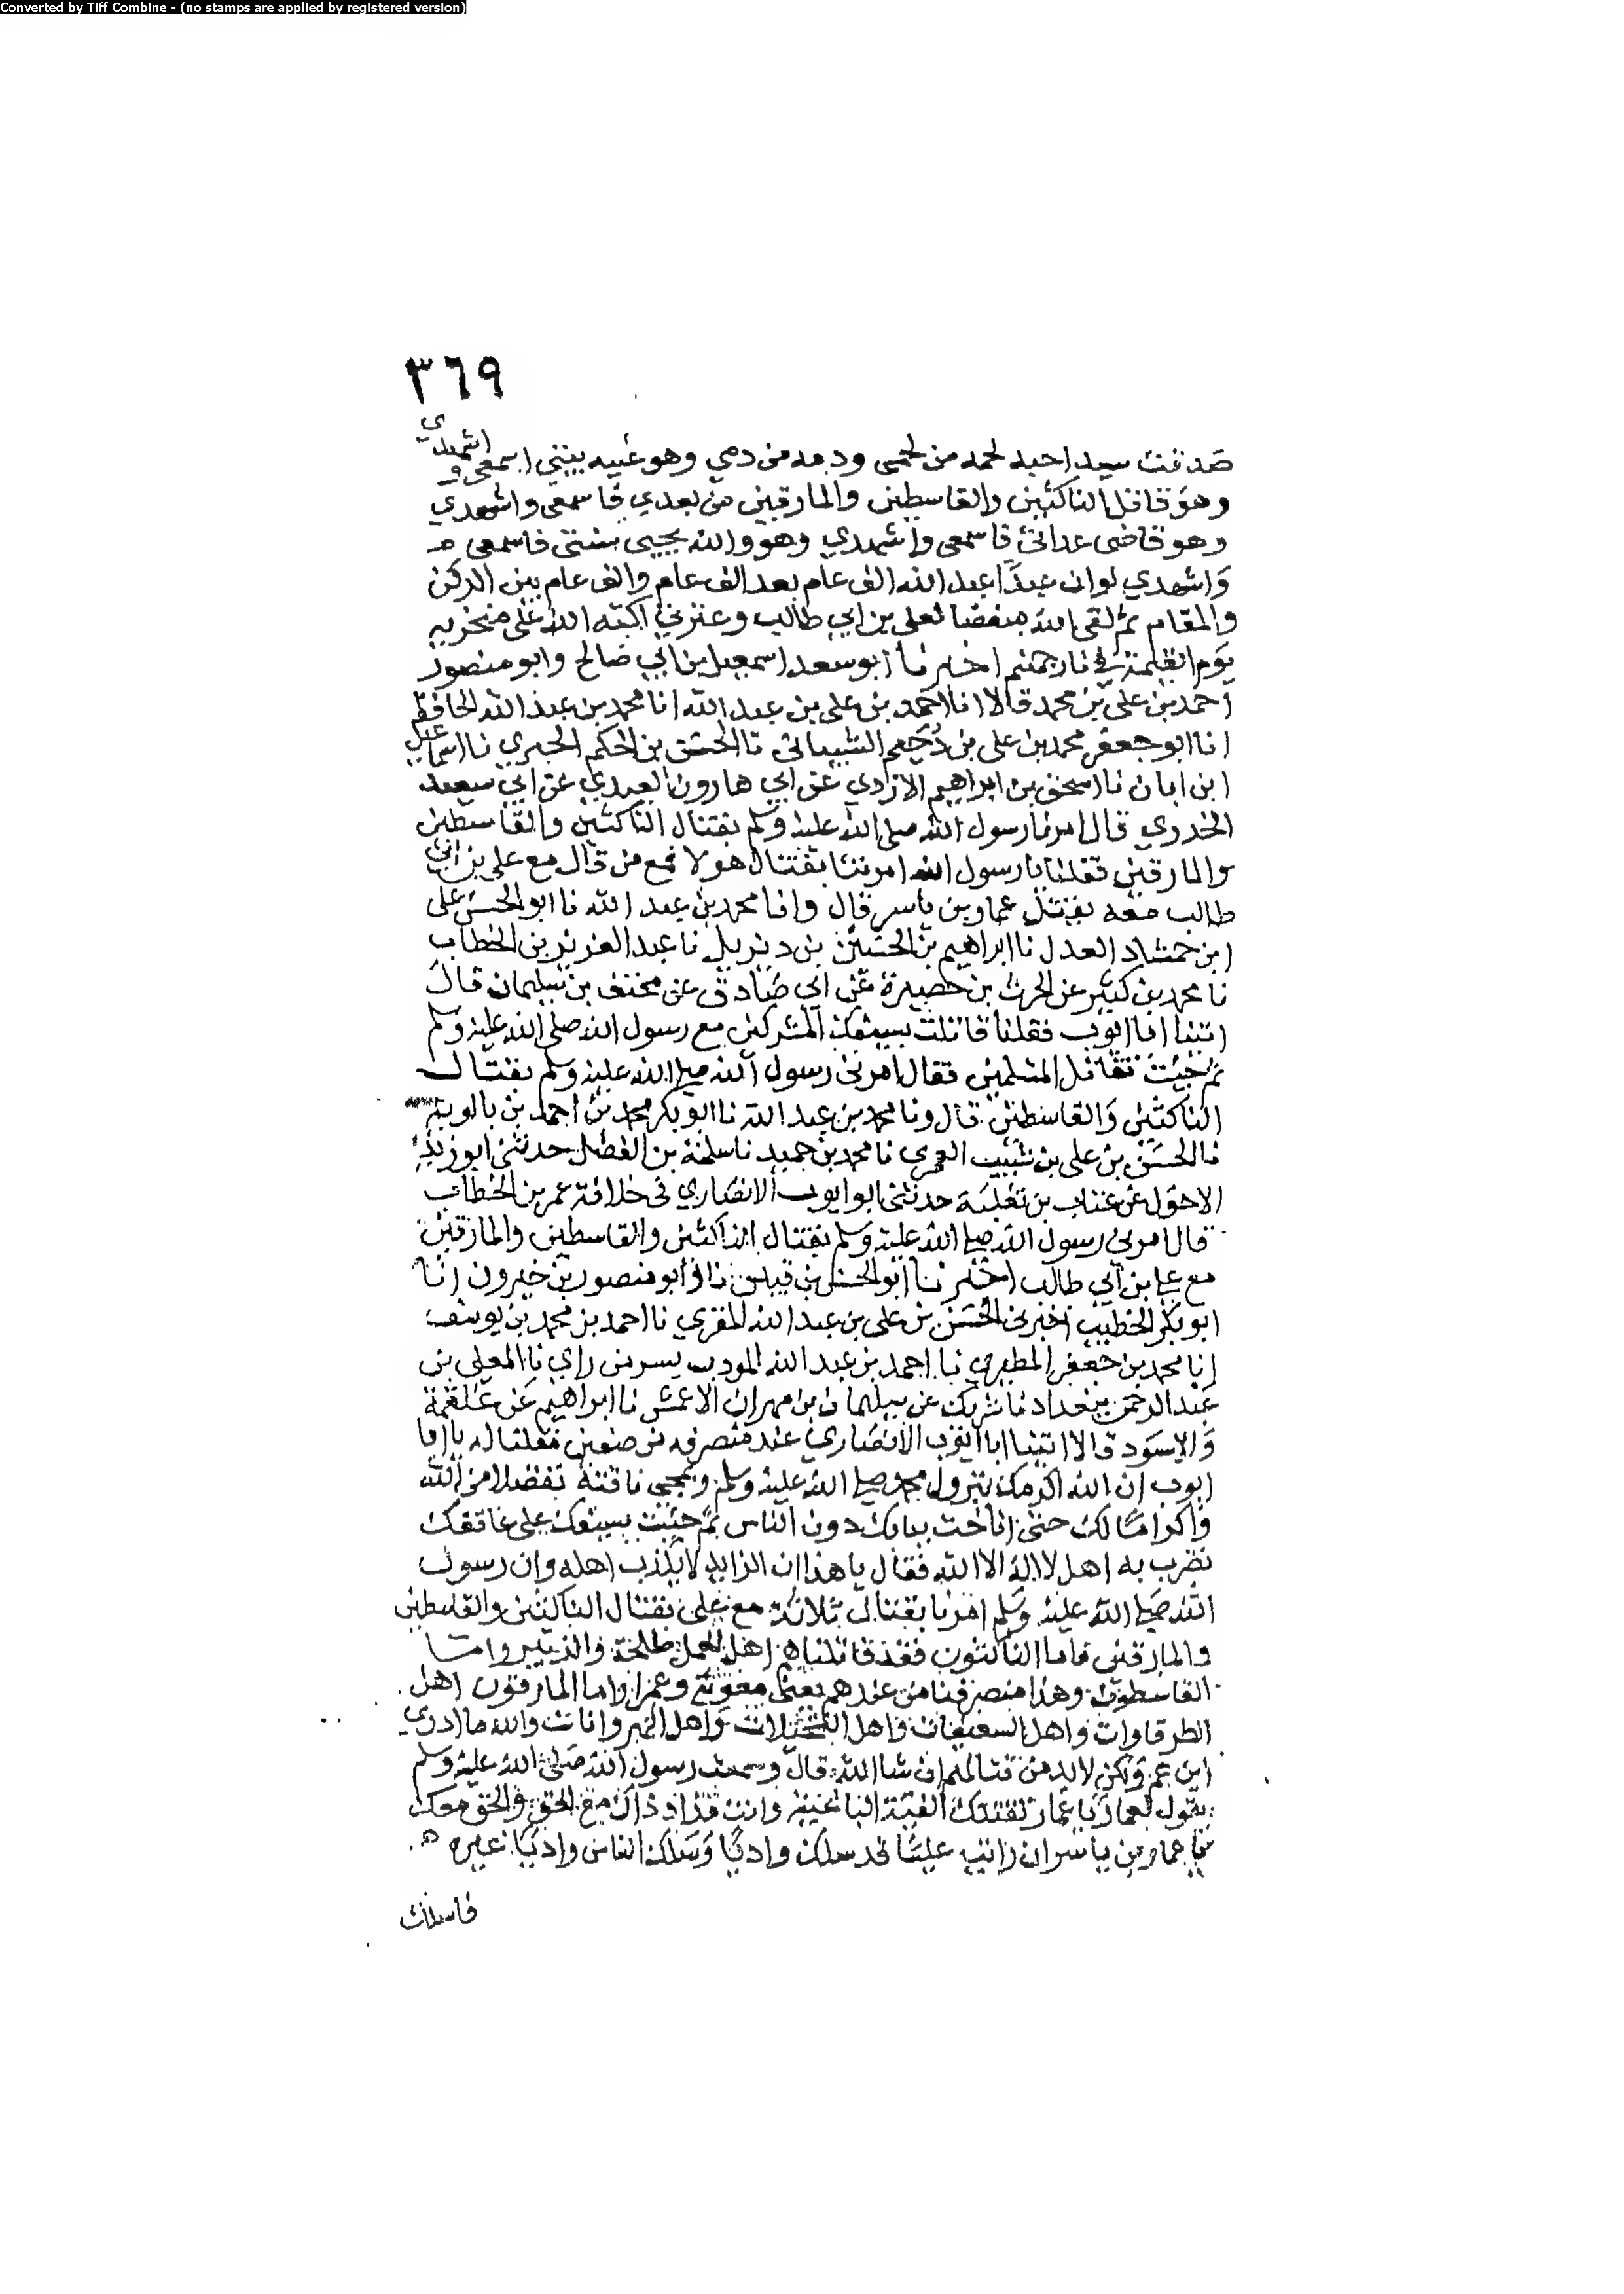 Converted by Tiff Combine - (no stamps are applied by registered version)
٣٦٩
صدقت سيد احبه لحمه من لحمي ودمه من دمي وهو عيبه بيتي اسمعي و اشهدي
وهو قاتل الناكثين والقاسطين والمارقين من بعدي فاسمعي واشهدي
وهو قاضي عداتي فاسمعي واشهدي وهو والله يحيي سنتي فاسمعي
واشهدي لو ان عبدا عبد الله الف عام بعد الف عام والف عام بين الركن
والمقام ثم لقى الله مبغضا لعلي بن ابي طالب وعترتي اكبه الله على منخريه
يوم القيمة في نار جهنم اخبرنا ابو سعد اسمعيل بن ابي صالح وابو منصور
احمد بن علي بن محمد قالا انا احمد بن علي بن عبد الله انا محمد بن عبد الله الحافظ
انا ابو جعفر محمد بن علي بن دحيم الشيباني نا الحسين بن الحكم الحبري نا اسماعيل
ابن ابان نا اسحق بن ابراهيم الازدي عن ابي هارون العبدي عن ابي سعيد
الخدري قال امرنا رسول الله صلى الله عليه وسلم بقتال الناكثين والقاسطين
والمارقين فقلنا يا رسول الله امرتنا بقتال هولا فمع من قال مع علي بن ابي
طالب معه يقتل عمار بن ياسر قال وانا محمد بن عبد الله نا ابو الحسن علي
ابن حمشاد العدل نا ابراهيم بن الحسين بن ديزيل نا عبد العزيز بن الخطاب
نا محمد بن كثير عن الحرث بن حصيرة عن ابي صادق عن مخنف بن سليمان قال
اتينا ابا ايوب فقلنا قاتلت بسيفك المشركين مع رسول الله صلى الله عليه وسلم
ثم جيت تقاتل المسلمين فقال امرني رسول الله صلى الله عليه وسلم بقتال
الناكثين والقاسطين قال ونا محمد بن عبد الله نا ابو بكر محمد بن احمد بن بالويه
نا الحسن بن علي بن شبيب المعمري نا محمد بن حميد نا سلمة بن الفضل حدثني ابو زيد
الاحول عن عتاب بن ثعلبة حدثني ابو ايوب الانصاري في خلافة عمر بن الخطاب
قال امرني رسول الله صلى الله عليه وسلم بقتال الناكثين والقاسطين والمارقين
مع علي بن ابي طالب اخبرنا ابو الحسن بن قبيس نا وابو منصور بن خيرون انا
ابو بكر الخطيب اخبرني الحسن بن علي بن عبد الله المقري نا احمد بن محمد بن يوسف
انا محمد بن جعفر المطيري نا احمد بن عبد الله المودب بسر من راي نا المعلى بن
عبد الرحمن ببغداد نا شريك عن سليمان بن مهران الاعمش نا ابراهيم عن علقمة
والاسود قالا اتينا ابا ايوب الانصاري عند منصرفه من صفين فقلنا له يا ابا
ايوب ان الله اكرمك بنزول محمد صلى الله عليه وسلم وبمجي ناقته تفضلا من الله
واكراما لك حتى اناخت ببابك دون الناس ثم جيت بسيفك على عاتقك
تضرب به اهل لا اله الا الله فقال يا هذا ان الرايد لا يكذب اهله وان رسول
الله صلى الله عليه وسلم امرنا بقتال ثلاثة مع علي بقتال الناكثين والقاسطين
والمارقين فاما الناكثون فقد قاتلناهم اهل الجمل طلحة والزبير واما
القاسطون وهذا منصرفنا من عندهم يعني معوية وعمرا واما المارقون اهل
الطرقاوات واهل السعيفات واهل النخيلات واهل النهروانات والله ما ادري
اين هم ولكن لا بد من قتالهم ان شا الله قال وسمعت رسول الله صلى الله عليه وسلم
يقول لعمار يا عمار تقتلك الفية الباغية وانت مذ اذ ذاك مع الحق والحق معك
يا عمار بن ياسر ان رايت عليا قد سلك واديا وسلك الناس واديا غيره
فاسلك